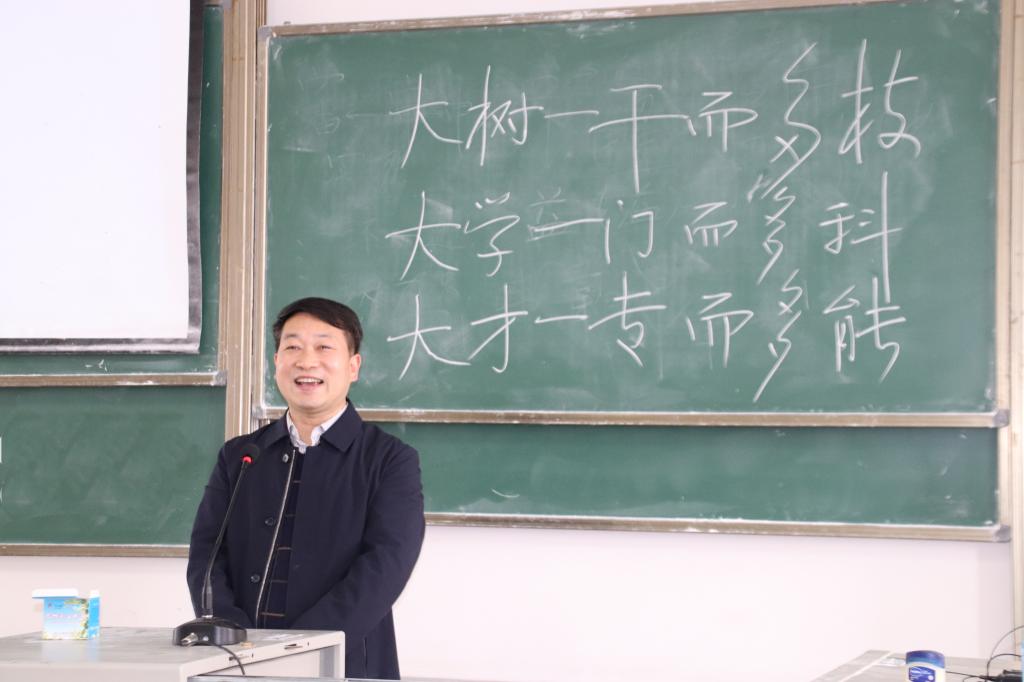 大树一干而多枝
大学一门而多科
大才一专而多能